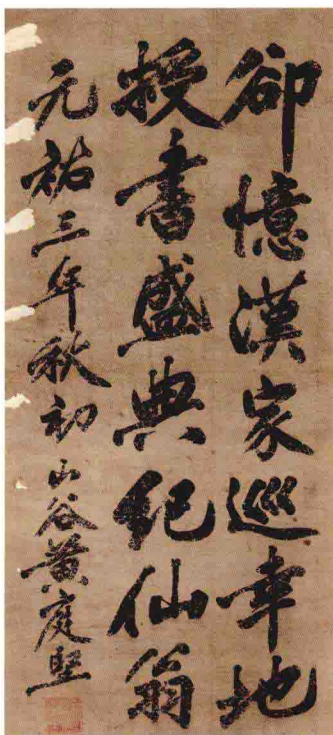 卻憶漢家巡幸地
授書盛典紀仙翁
元祐三年秋初山谷黃庭堅